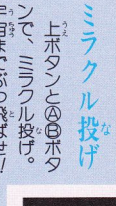 ミラクル投げ
上ボタンとⒶⒷボタ
ンで、ミラクル投げ。
宇宙までぶっ飛ばせ!